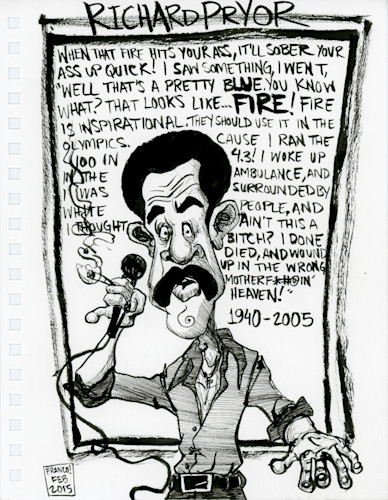 RICHARD PRYOR
WHEN THAT FIRE HITS YOUR ASS, IT'LL SOBER YOUR
ASS UP QUICK! I SAW SOMETHING, I WENT,
"WELL THAT'S A PRETTY BLUE. YOU KNOW
WHAT? THAT LOOKS LIKE... FIRE! FIRE
IS INSPIRATIONAL. THEY SHOULD USE IT IN THE
OLYMPICS. CAUSE I RAN THE
100 IN 4.3! I WOKE UP
IN THE AMBULANCE, AND
I WAS SURROUNDED BY
WHITE PEOPLE, AND
I THOUGHT "AIN'T THIS A
BITCH? I DONE
DIED, AND WOUND
UP IN THE WRONG
MOTHERF*#@IN'
HEAVEN!"
1940-2005
FRANCO!
FEB
2015